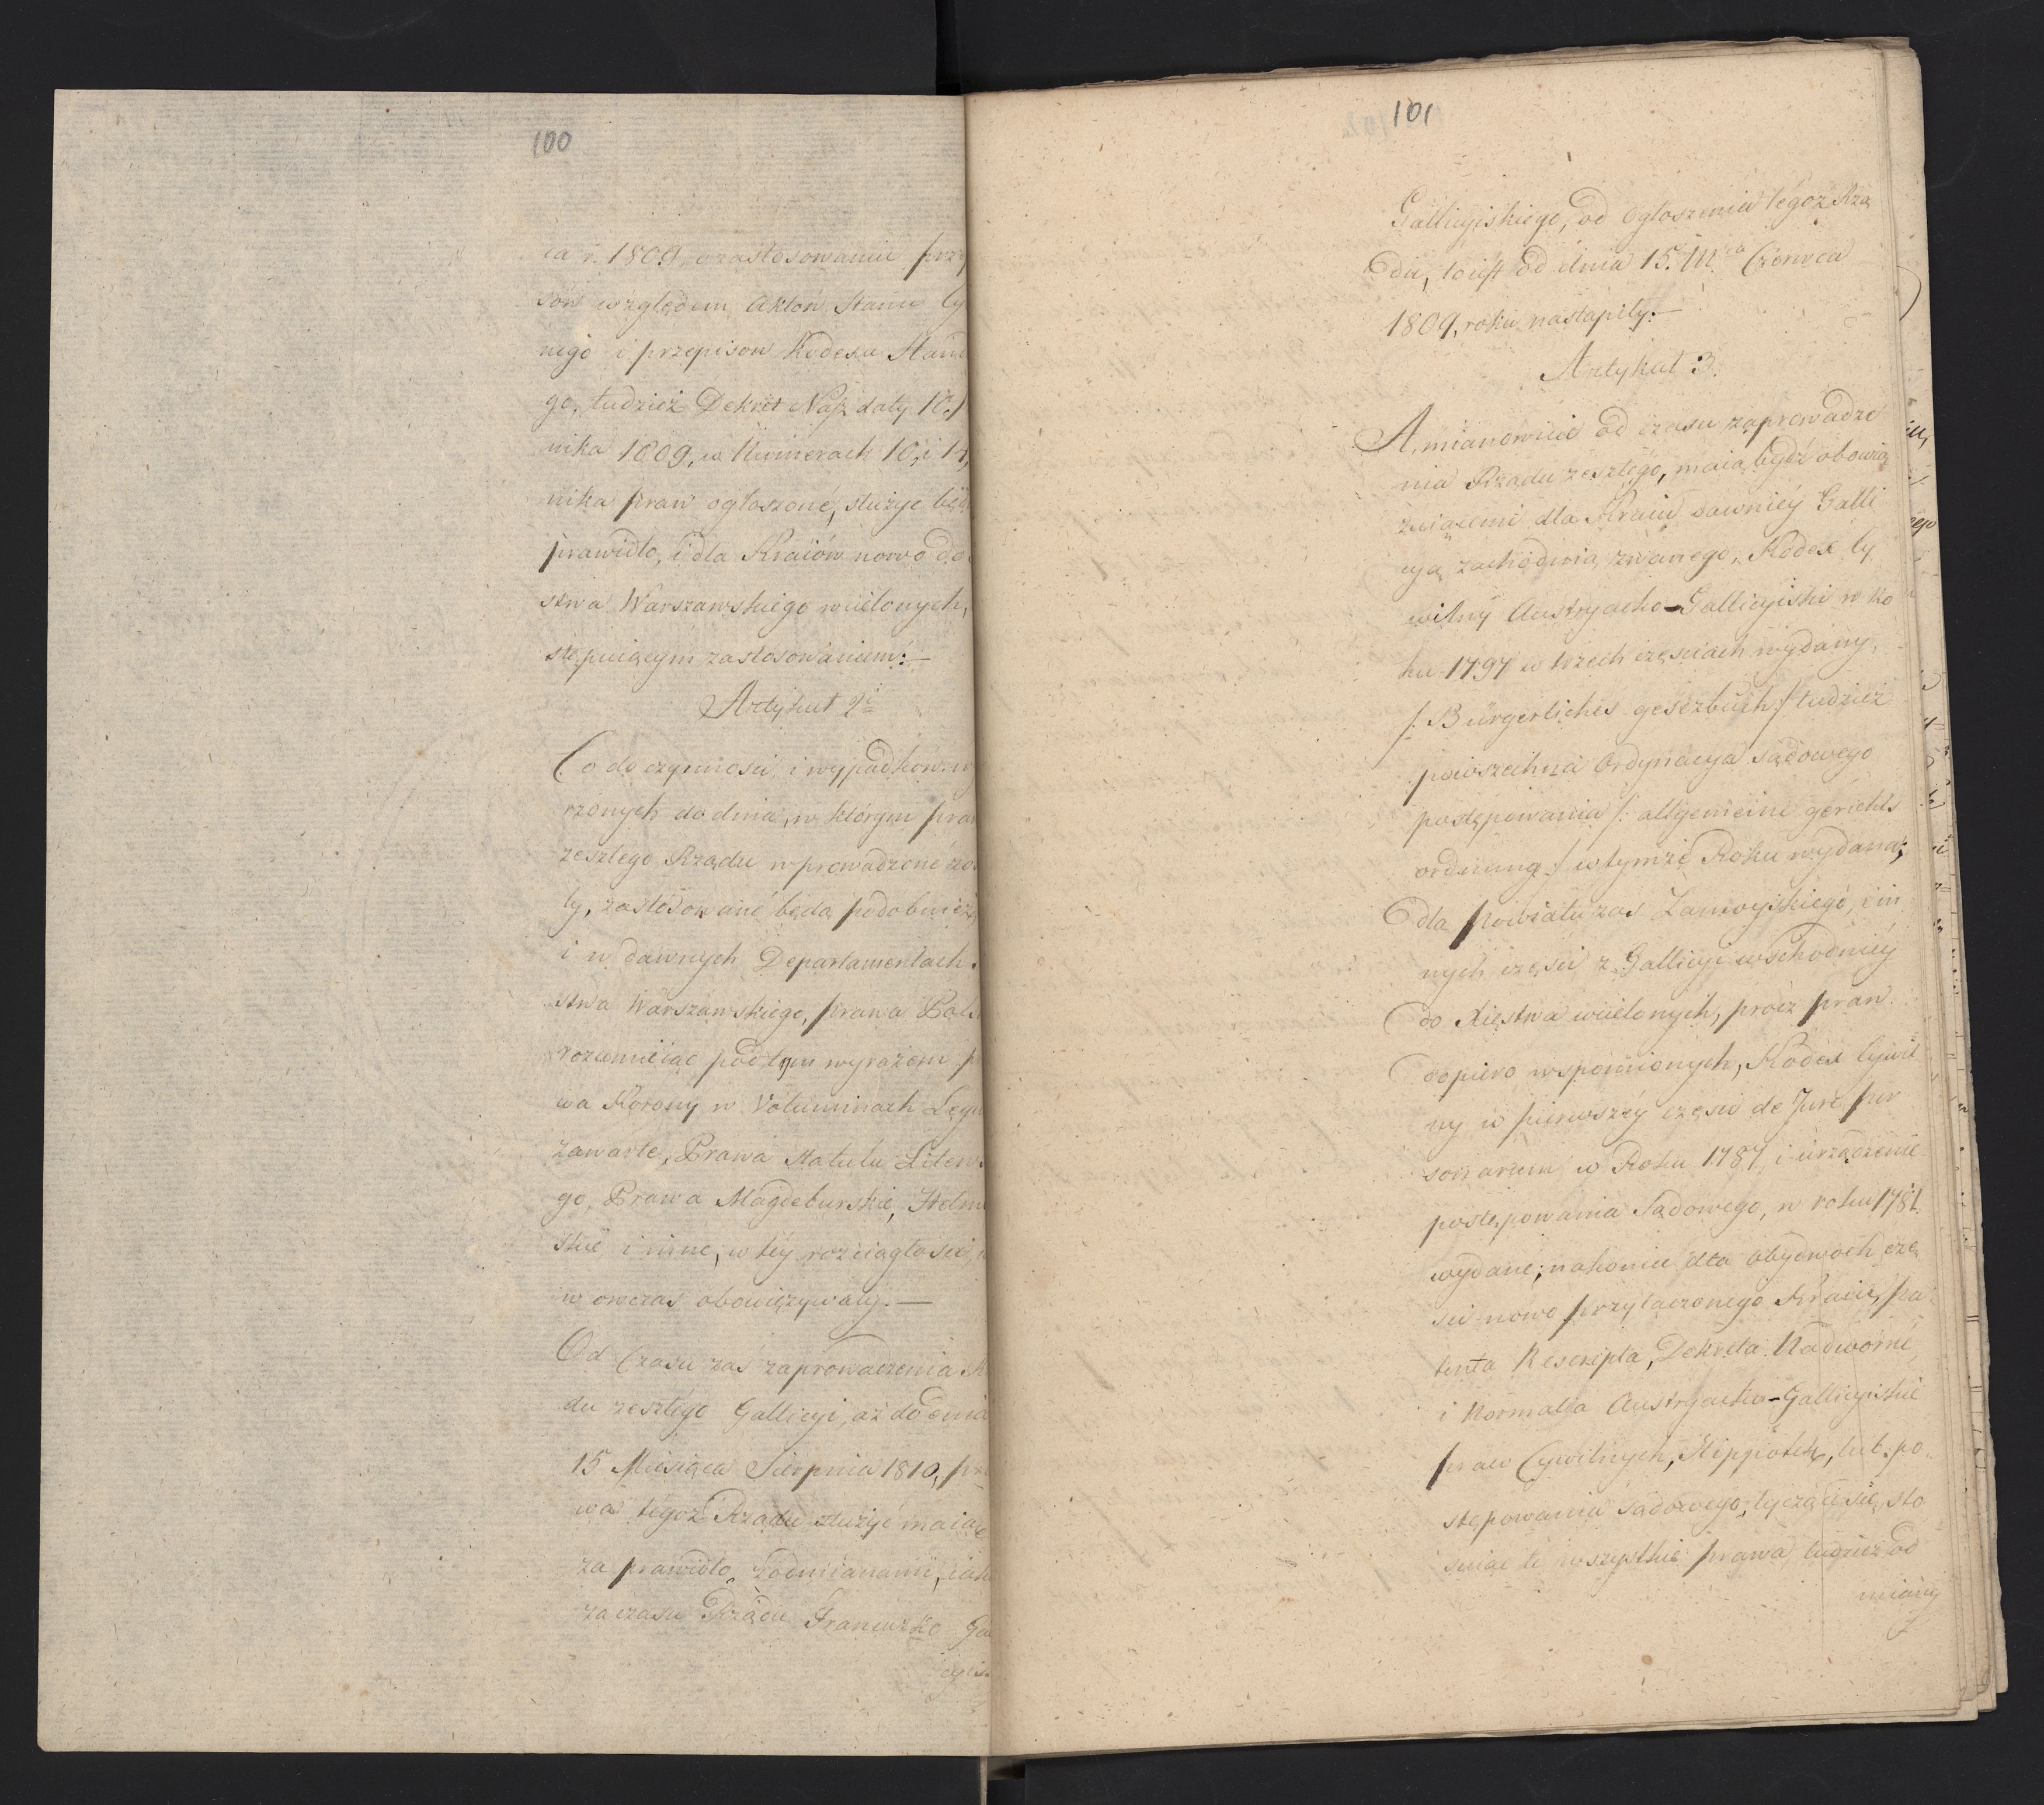 100
ca r. 1809, o zastosowaniu przy
sów względem Aktów Stanu Cy
nego i przepisow Kodexu Stanu
go, tudzież Dekret Nasz daty 10.
nika 1809, w Numerach 10, i 14,
nika praw ogłoszone, służyć będą
prawidło, i dla Kraiów nowo do
stwa Warszawskiego wcielonych,
stępuiącym zastosowaniem:—
Artykuł 2i
Co do czynności, i wypadków, w
rzonych do dnia, w którym pra
zeszłego Rządu wprowadzone zo
ły, zastosowane będą podobnież,
i w dawnych Departamentach
stwa Warszawskiego, prawa Pols
rozumieiąc pod tym wyrazem p
wa Korony w Voluminach Legu
zawarte, Prawa Statutu Litews
go, Prawa Magdeburskie, Helmi
skie i inne, w téy rozciągłości,
w owczas obowięzywały.—
Od Czasu zaś zaprowadzenia R
du zeszłego Gallicyi, aż do dnia
15 Miesiąca Sierpnia 1810, pr
wa tegoż Rządu służyć maią
za prawidło, z odmianami, iak
za czasu Rządu Francuzko Ga
cyis
101
Gallicyiskiego, od ogłoszenia tégoż Rzą
du, toiest od dnia 15. Mca Czerwca
1809, roku nastąpiły.—
Artykuł 3.
A mianowicie od czasu zaprowadze
nia Rządu zeszłego, maią bydź obowią
zuiącemi dla Kraiu dawniéy Galli
cyą zachodnią zwanego, Kodex Cy
wilny Austryacko-Gallicyiski w Ro
ku 1797 w trzech częściach wydany,
/: Bürgerliches gesezbuch/ tudzież
powszechna Ordynacya sądowego
postępowania /: allgemeine gerichts
ordnung :/ w tymże Roku wydana;
dla powiatu zas Zamoyskiego, i in
nych części z Gallicyi wschodniéy
do Xięstwa wcielonych, prócz praw
dopiero wspomnionych, Kodex Cywil
ny w pierwszéy części de Jure per
sonarum w Roku 1787, i urządzenie
postępowania Sądowego, w roku 1781.
wydane; nakoniec dla obydwoch czę
ści nowo przyłączonego Kraiu, pa
tenta Rescripta, Dekreta Nadworne
i Normalia Austryacko-Gallicyiskie
praw Cywilnych, Hippotek, lub po
stępowania sądowego, tyczące się, sto
suiąc te wszystkie prawa tudzież od
miany